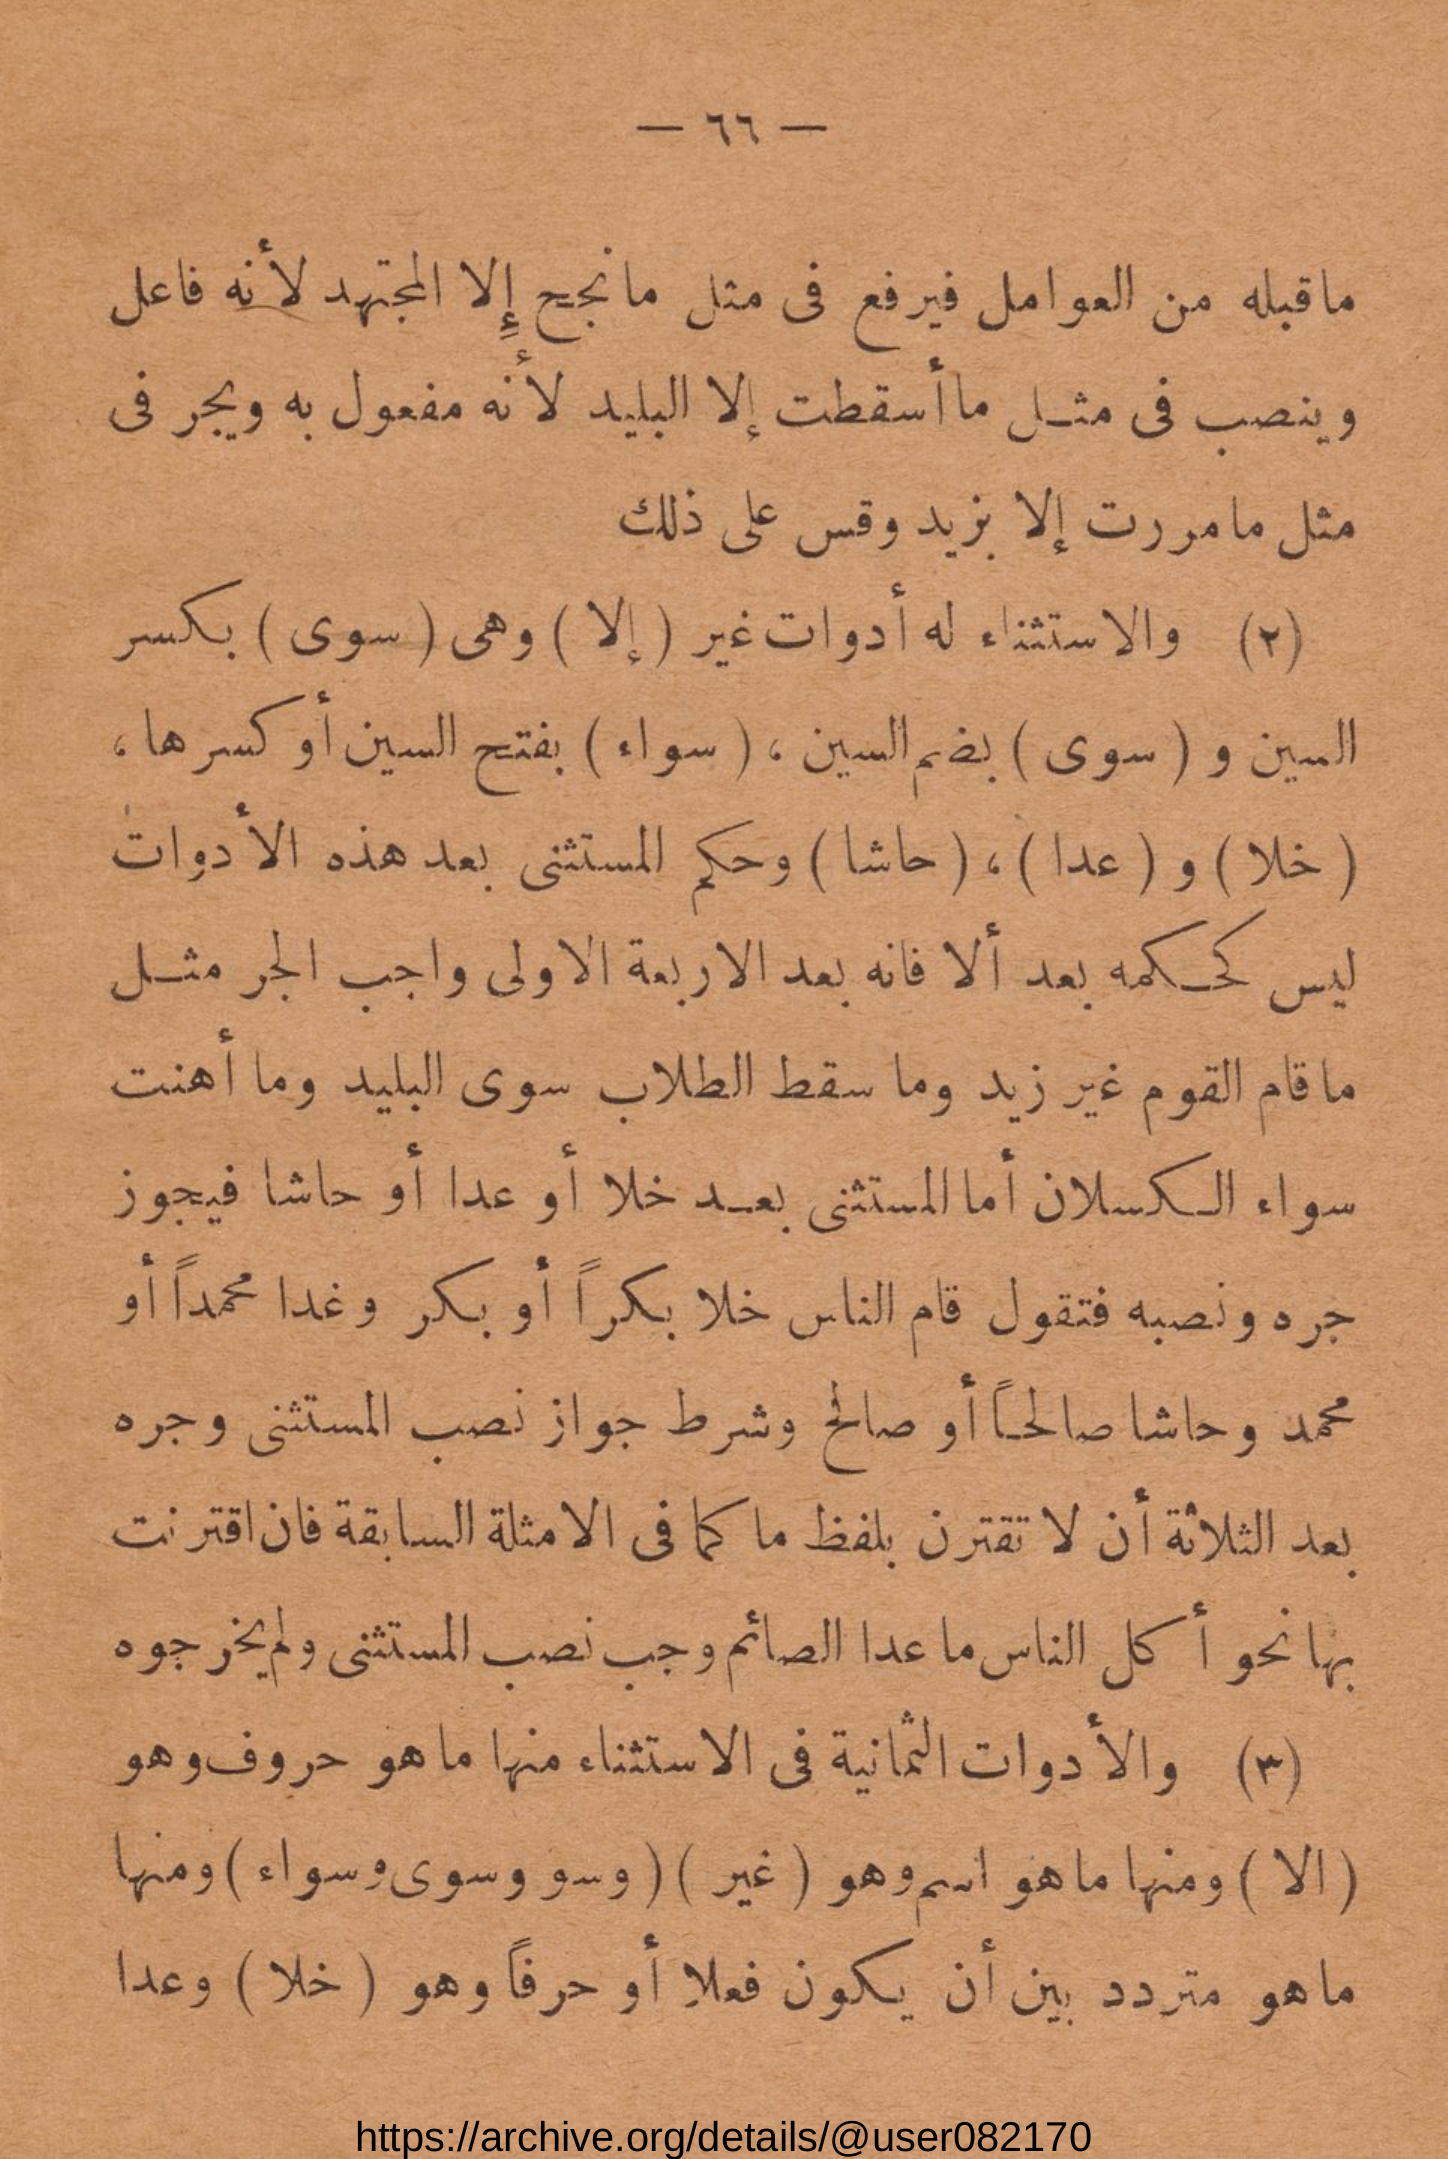 — ٦٦ —
ماقبله من العوامل فيرفع فى مثل مانجح إلا المجتهد لأنه فاعل
وينصب فى مثل ماأسقطت إلا البليد لأنه مفعول به ويجر فى
مثل مامررت إلا بزيد وقس على ذلك
(٢) والاستثناء له أدوات غير (إلا) وهى (سوى) بكسر
السين و (سوى) بضم السين ، (سواء) بفتح السين أو كسرها ،
(خلا) و (عدا) ، (حاشا) وحكم المستثنى بعد هذه الأدوات
ليس كحكمه بعد ألا فانه بعد الاربعة الاولى واجب الجر مثل
ماقام القوم غير زيد وما سقط الطلاب سوى البليد وما أهنت
سواء الكسلان أما المستثنى بعد خلا أو عدا أو حاشا فيجوز
جره ونصبه فتقول قام الناس خلا بكراً أو بكر وغدا محمداً أو
محمد وحاشا صالحاً أو صالح وشرط جواز نصب المستثنى وجره
بعد الثلاثة أن لا تقترن بلفظ ما كما فى الامثلة السابقة فان اقترنت
بها نحو أكل الناس ما عدا الصائم وجب نصب المستثنى ولم يخرجوه
(٣) والأدوات الثمانية فى الاستثناء منها ماهو حروف وهو
(الا) ومنها ماهو اسم وهو (غير) (وسو وسوى وسواء) ومنها
ماهو متردد بين أن يكون فعلا أو حرفاً وهو (خلا) وعدا
https://archive.org/details/@user082170